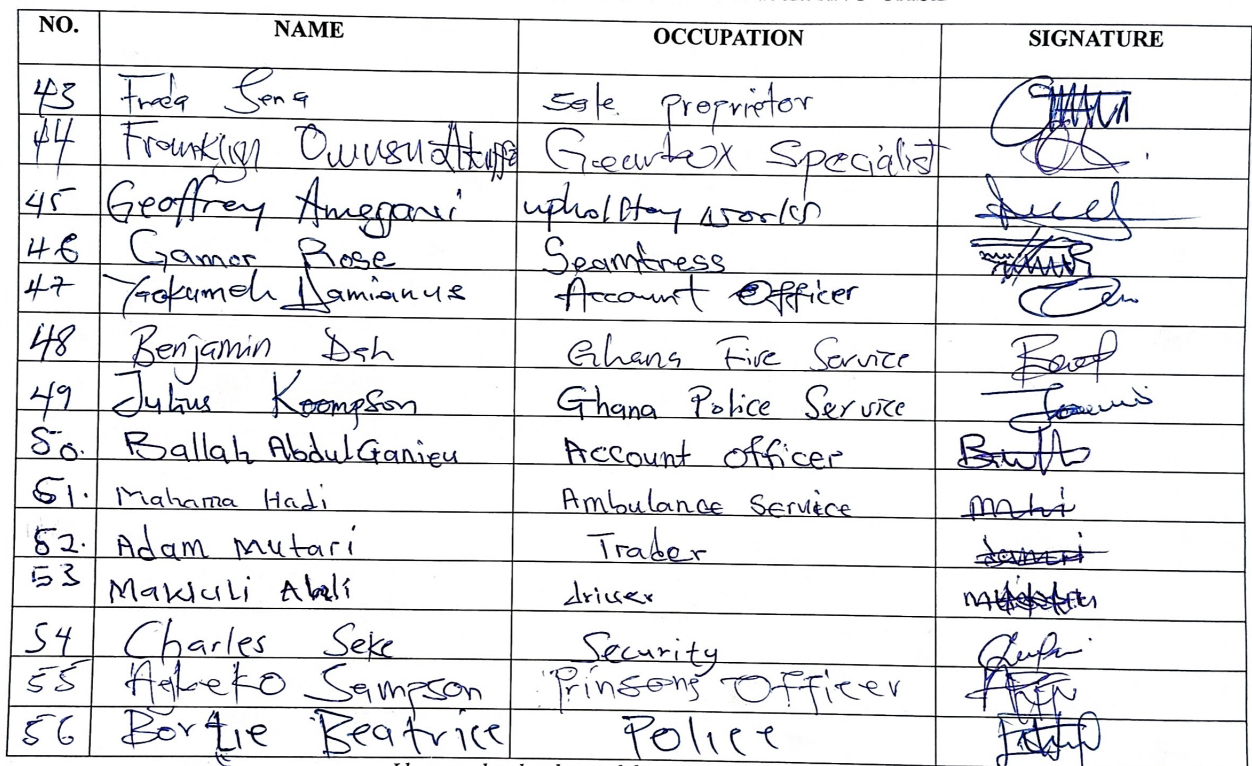 NO. NAME OCCUPATION SIGNATURE
43 Freda Sena Sole Proprietor
44 Franklign Owusu Gearbox Specialist
45 Geoffrey Amegavi upholstey works
46 Gamor Rose Seamtress
47 Yaokumeh Damianus Account Officer
48 Benjamin Dah Ghana Fire Service
49 Julius Koompson Ghana Police Service
50. Ballah Abdul Ganieu Account officer
51. Mahama Hadi Ambulance Service
52. Adam Mutari Trader
53 driver
54 Charles Seke Security
55 Agbeko Sampson Prinsons Officer
56 Bortie Beatrice Police